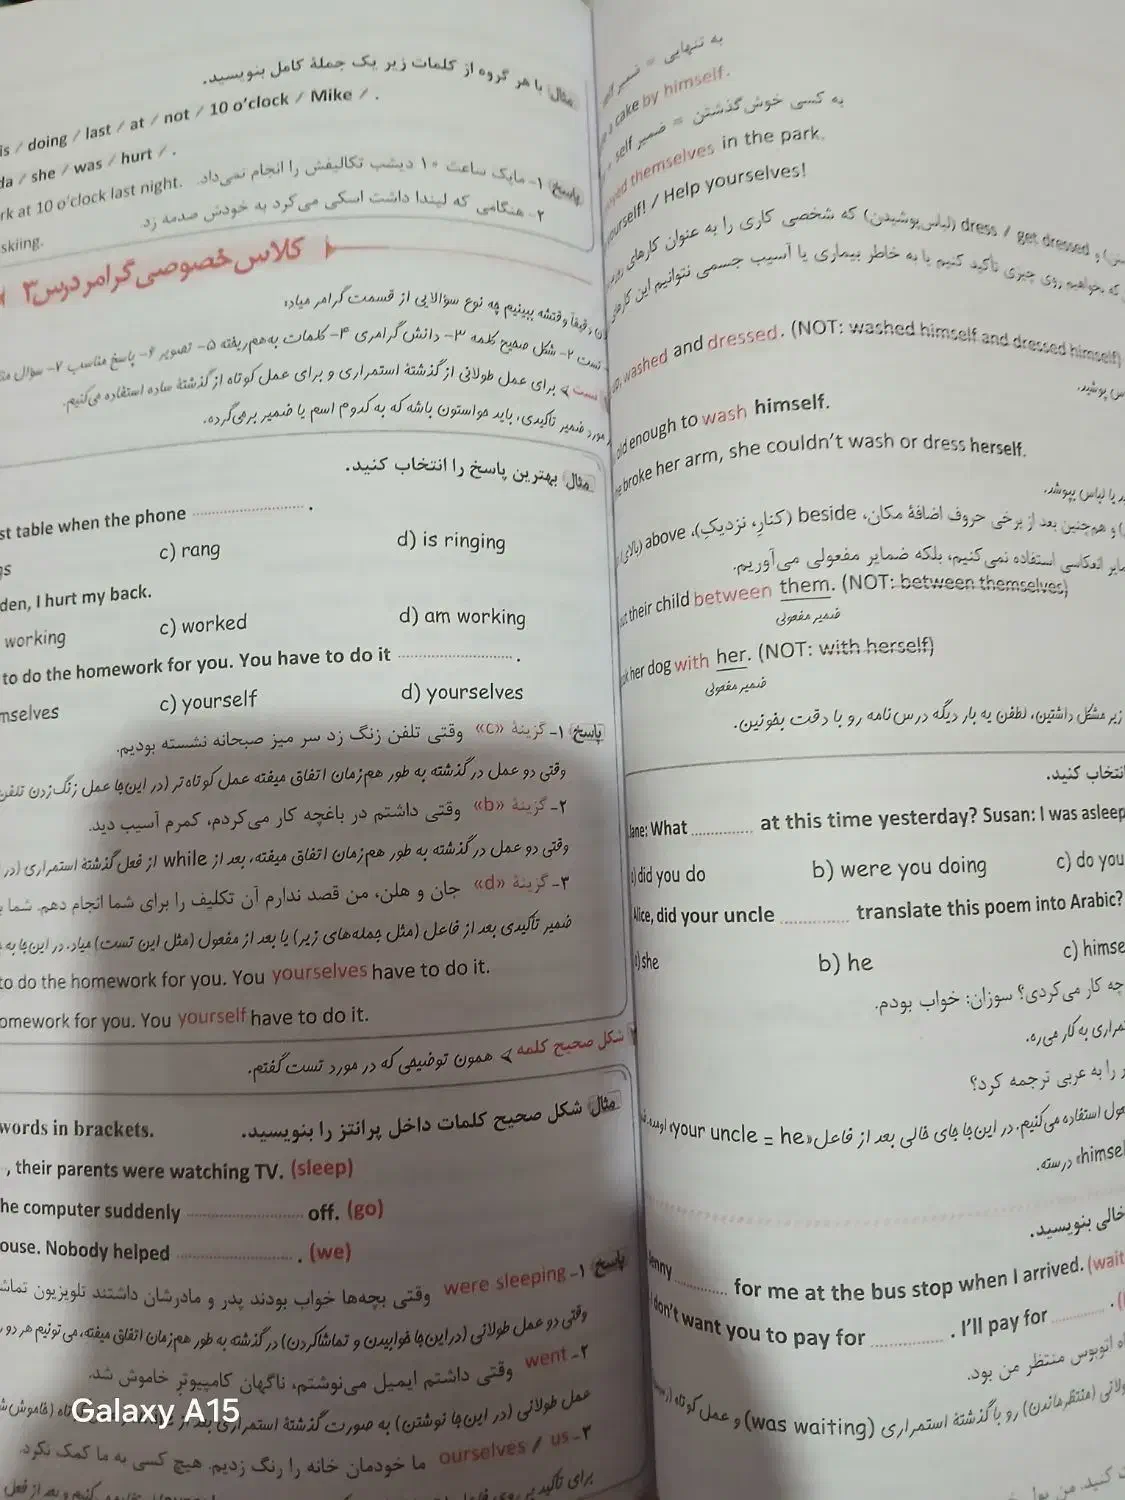 مثال با هر گروه از کلمات زیر یک جملهٔ کامل بنویسید.
is / doing / last / at / not / 10 o'clock / Mike / .
da / she / was / hurt / .
پاسخ ۱- مایک ساعت ۱۰ دیشب تکالیفش را انجام نمی‌داد. rk at 10 o'clock last night.
۲- هنگامی که لیندا داشت اسکی می‌کرد به خودش صدمه زد
skiing.
کلاس خصوصی گرامر درس ۳
دقیقاً وقتشه ببینیم چه نوع سؤالایی از قسمت گرامر میاد:
تست ۲- شکل صحیح کلمه ۳- دانش گرامری ۴- کلمات به‌هم‌ریخته ۵- تصویر ۶- پاسخ مناسب ۷- سوال
تست > برای عمل طولانی از گذشتهٔ استمراری و برای عمل کوتاه از گذشتهٔ ساده استفاده می‌کنیم.
مورد ضمیر تاکیدی، باید حواستون باشه که به کدوم اسم یا ضمیر برمی‌گرده.
مثال بهترین پاسخ را انتخاب کنید.
st table when the phone .................... .
gs c) rang d) is ringing
den, I hurt my back.
working c) worked d) am working
to do the homework for you. You have to do it .................... .
mselves c) yourself d) yourselves
پاسخ ۱- گزینهٔ «c» وقتی تلفن زنگ زد سر میز صبحانه نشسته بودیم.
وقتی دو عمل در گذشته به طور هم‌زمان اتفاق میفته عمل کوتاه‌تر (در این‌جا عمل زنگ‌زدن تلفن
۲- گزینهٔ «b» وقتی داشتم در باغچه کار می‌کردم، کمرم آسیب دید.
وقتی دو عمل در گذشته به طور هم‌زمان اتفاق میفته، بعد از while از فعل گذشتهٔ استمراری (در
۳- گزینهٔ «d» جان و هلن، من قصد ندارم آن تکلیف را برای شما انجام دهم. شما
ضمیر تأکیدی بعد از فاعل (مثل جمله‌های زیر) یا بعد از مفعول (مثل این تست) میاد. در این‌جا به
to do the homework for you. You yourselves have to do it.
omework for you. You yourself have to do it.
شکل صحیح کلمه > همون توضیحی که در مورد تست گفتم.
مثال شکل صحیح کلمات داخل پرانتز را بنویسید.
words in brackets.
, their parents were watching TV. (sleep)
he computer suddenly .................... off. (go)
ouse. Nobody helped .................... . (we)
پاسخ ۱- were sleeping وقتی بچه‌ها خواب بودند پدر و مادرشان داشتند تلویزیون تماشا
وقتی دو عمل طولانی (در این‌جا خوابیدن و تماشاکردن) در گذشته به طور هم‌زمان اتفاق میفته، می‌تونیم هر دو
۲- went وقتی داشتم ایمیل می‌نوشتم، ناگهان کامپیوتر خاموش شد.
عمل طولانی (در این‌جا نوشتن) به صورت گذشتهٔ استمراری بعد از
۳- ourselves / us ما خودمان خانه را رنگ زدیم. هیچ کسی به ما کمک نکرد.
Galaxy A15
به تنهایی = ضمیر self
a cake by himself.
به کسی خوش گذشتن = ضمیر self
oyed themselves in the park.
yourself! / Help yourselves!
و dress / get dressed (لباس پوشیدن) که شخصی کاری را به عنوان کارهای
که بخواهیم روی چیزی تأکید کنیم یا به خاطر بیماری یا آسیب جسمی نتوانیم این کارهای
up, washed and dressed. (NOT: washed himself and dressed himself)
old enough to wash himself.
he broke her arm, she couldn't wash or dress herself.
یا لباس بپوشد.
و هم‌چنین بعد از برخی حروف اضافهٔ مکان، beside (کنارِ، نزدیکِ)، above (بالای)
ضمایر انعکاسی استفاده نمی‌کنیم، بلکه ضمایر مفعولی می‌آوریم.
their child between them. (NOT: between themselves)
ضمیر مفعولی
her dog with her. (NOT: with herself)
ضمیر مفعولی
زیر مشکل داشتین، لطفن یه بار دیگه درس‌نامه رو با دقت بخونین.
انتخاب کنید.
Jane: What ............ at this time yesterday? Susan: I was asleep
a) did you do b) were you doing c) do you
Alice, did your uncle ............ translate this poem into Arabic?
a) she b) he c) himse
چه کار می‌کردی؟ سوزان: خواب بودم.
استمراری به کار می‌ره.
را به عربی ترجمه کرد؟
استفاده می‌کنیم. در این‌جا جای خالی بعد از فاعل «your uncle = he» اومده.
himsel» درسته.
خالی بنویسید.
enny ............ for me at the bus stop when I arrived. (wait
don't want you to pay for ............ . I'll pay for ............ .
اتوبوس منتظر من بود.
(منتظرماندن) رو با گذشتهٔ استمراری (was waiting) و عمل کوتاه